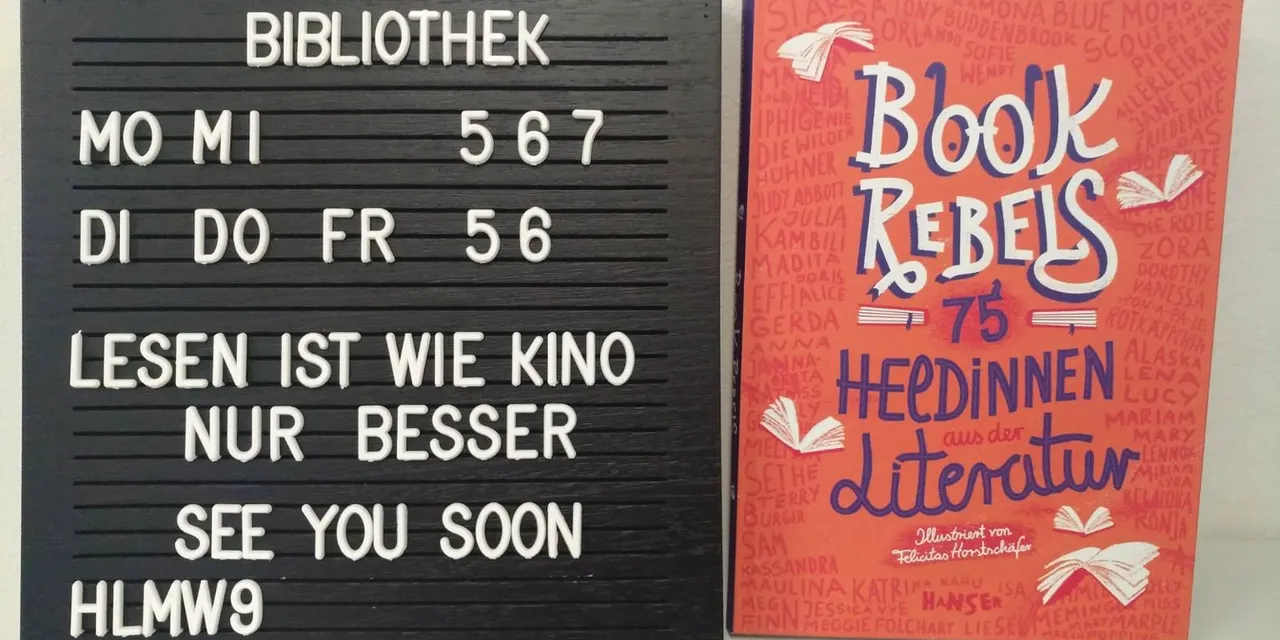 BIBLIOTHEK
MO MI 5 6 7
DI DO FR 5 6
LESEN IST WIE KINO
NUR BESSER
SEE YOU SOON
HLMW9
BOOK
REBELS
75
HELDINNEN
aus der
Literatur
Illustriert von
Felicitas Horstschäfer
HANSER
RAMONA BLUE MOMO
TONY BUDDENBROOK
ORLANDO SOFIE
SCOUT
WENDY
JANE EYRE
IPHIGENIE
DIE WILDEN
HÜHNER
JUDY ABBOTT
JULIA
KAMBILI
MADITA
DORIS
EFFI ALICE
GERDA
DIE ROTE
ZORA
DOROTHY
VANESSA
ALASKA
LENA
LUCY
MARIAM
MARY
LENNOX
MIRIAM
KYRA
RONJA
SETHE
TERRY
BURGER
SAM
KASSANDRA
MAULINA KATRINA KAHU ISA
MEG JESSICA VYE
FINN MEGGIE FOLCHART LIESEL MEMINGER MISS
MARPLE